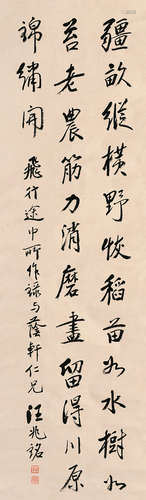 疆畝縱橫野恢稻苗如水樹如
苔老農筋力消磨盡留得川原
錦繡開
飛行途中所作錄与蔭軒仁兄
汪兆銘